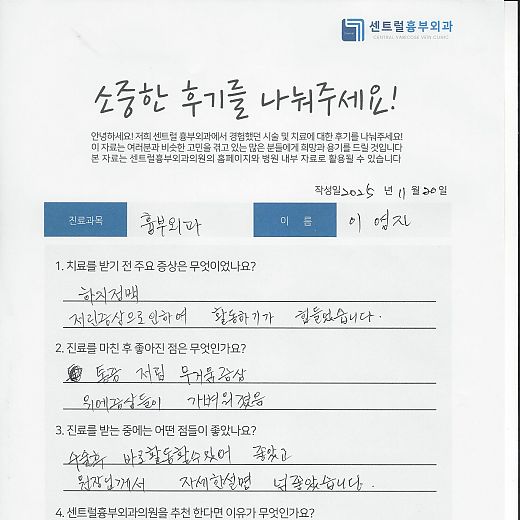 센트럴흉부외과
CENTRAL VARICOSE VEIN CLINIC
소중한 후기를 나눠주세요!
안녕하세요! 저희 센트럴 흉부외과에서 경험했던 시술 및 치료에 대한 후기를 나눠주세요!
이 자료는 여러분과 비슷한 고민을 겪고 있는 많은 분들에게 희망과 용기를 드릴 것입니다
본 자료는 센트럴흉부외과의원의 홈페이지와 병원 내부 자료로 활용될 수 있습니다
작성일 2025 년 11 월 20 일
진료과목 흉부외과 이 름 이 영지
1. 치료를 받기 전 주요 증상은 무엇이었나요?
하지정맥
저린증상으로인하여 활동하기가 힘들었습니다.
2. 진료를 마친 후 좋아진 점은 무엇인가요?
통증 저림 무거움증상
위에증상들이 가벼워졌음
3. 진료를 받는 중에는 어떤 점들이 좋았나요?
수술후 바로활동할수있어 좋았고
원장님께서 자세한설명 넘좋았습니다.
4. 센트럴흉부외과의원을 추천 한다면 이유가 무엇인가요?